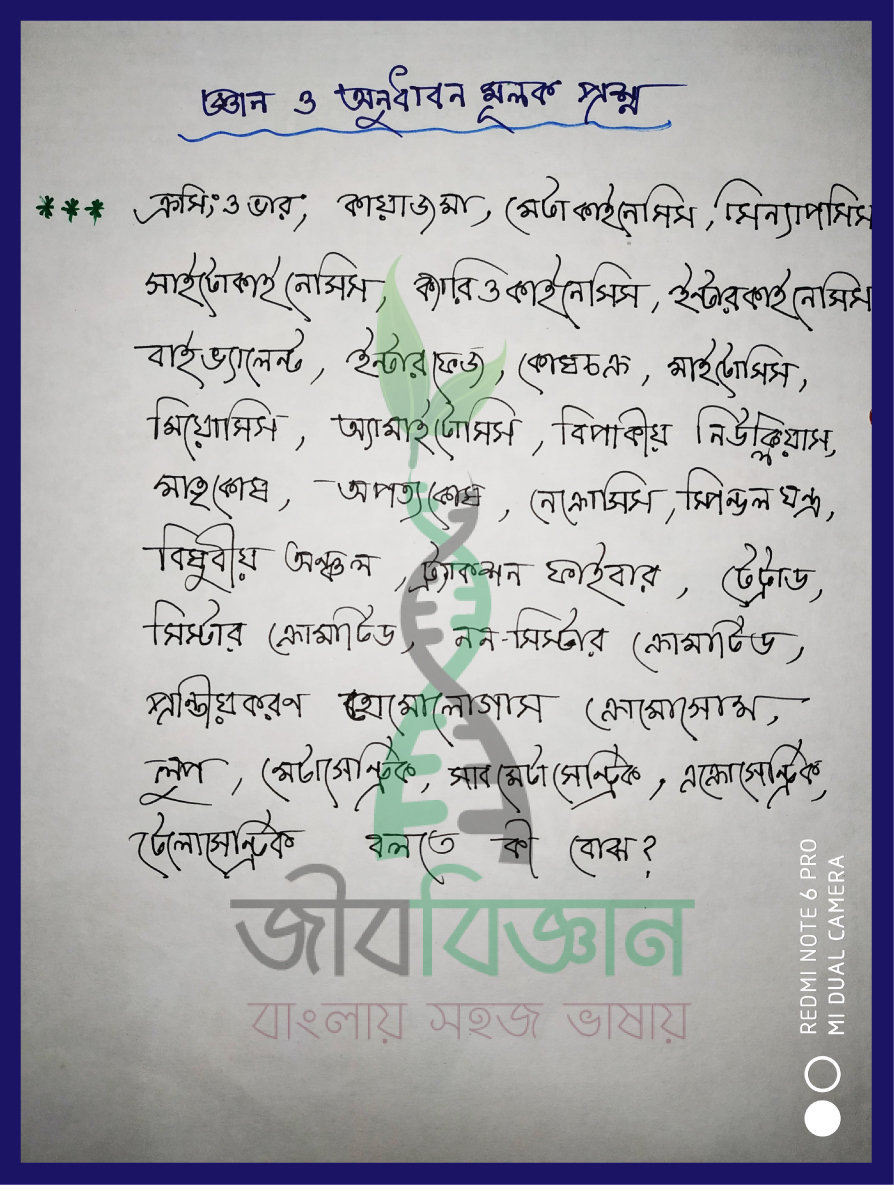 জ্ঞান ও অনুধাবন মূলক প্রশ্ন
*** ক্রসিং ওভার, কায়াজমা, মেটাকাইনেসিস, সিন্যাপসিস
সাইটোকাইনেসিস, ক্যারিওকাইনেসিস, ইন্টারকাইনেসিস
বাইভ্যালেন্ট, ইন্টারফেজ, কোষচক্র, মাইটোসিস,
মিয়োসিস, অ্যামাইটোসিস, বিপাকীয় নিউক্লিয়াস,
মাতৃকোষ, অপত্যকোষ, নেক্রোসিস, স্পিন্ডল যন্ত্র,
বিষুবীয় অঞ্চল, ট্র্যাকশন ফাইবার, টেট্রাড,
সিস্টার ক্রোমাটিড, নন-সিস্টার ক্রোমাটিড,
প্রান্তীয়করণ হোমোলোগাস ক্রোমোসোম,
লুপ, মেটাসেন্ট্রিক, সাবমেটাসেন্ট্রিক, এক্রোসেন্ট্রিক,
টেলোসেন্ট্রিক বলতে কী বোঝ?
জীববিজ্ঞান
বাংলায় সহজ ভাষায়
REDMI NOTE 6 PRO
MI DUAL CAMERA